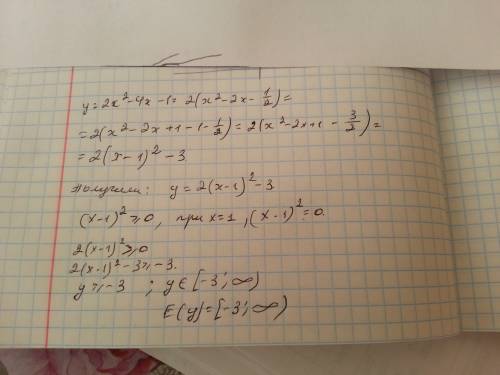 y = 2x² - 4x - 1 = 2(x² - 2x - 1/2) =
= 2(x² - 2x + 1 - 1 - 1/2) = 2(x² - 2x + 1 - 3/2) =
= 2(x - 1)² - 3
Получили: y = 2(x-1)² - 3
(x-1)² ≥ 0, при x = 1, (x-1)² = 0.
2(x-1)² ≥ 0
2(x-1)² - 3 ≥ -3.
y ≥ -3 ; y ∈ [-3; ∞)
E(y) = [-3; ∞)